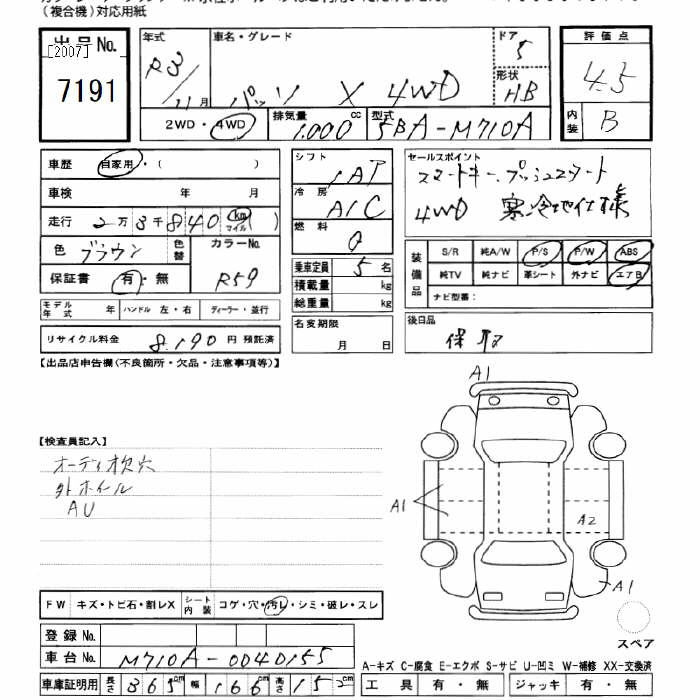 (複合機)対応用紙
出品No.
[2007]
7191
年式 車名・グレード ドア
R3/11月 パッソ X 4WD 5
形状 HB
2WD・4WD 排気量 1,000 cc 型式 5BA-M710A
評価点
4.5
内装 B
車歴 自家用・( )
車検 年 月
走行 2万3千840 km マイル( )
色 ブラウン 色替 カラーNo. R59
保証書 有・無
モデル年式 年 ハンドル 左・右 ディーラー・並行
リサイクル料金 8,190 円 預託済
シフト IAT
冷房 A/C
燃料 G
乗車定員 5名
積載量 kg
総重量 kg
名変期限 月 日
セールスポイント
スマートキー、プッシュスタート
4WD 寒冷地仕様
装備品 S/R 純A/W P/S P/W ABS
純TV 純ナビ 革シート 外ナビ エアB
ナビ型番:
後日品
保 取
【出品店申告欄(不良箇所・欠品・注意事項等)】
【検査員記入】
オーディオ欠穴
外ホイール
AU
A1
A1
A2
A1
スペア
FW キズ・トビ石・割レX シート内装 コゲ・穴・汚レ・シミ・破レ・スレ
登録No.
車台No. M710A-0040155
車庫証明用 長さ 365cm 幅 166cm 高さ 152cm
A-キズ C-腐食 E-エクボ S-サビ U-凹ミ W-補修 XX-交換済
工具 有・無 ジャッキ 有・無